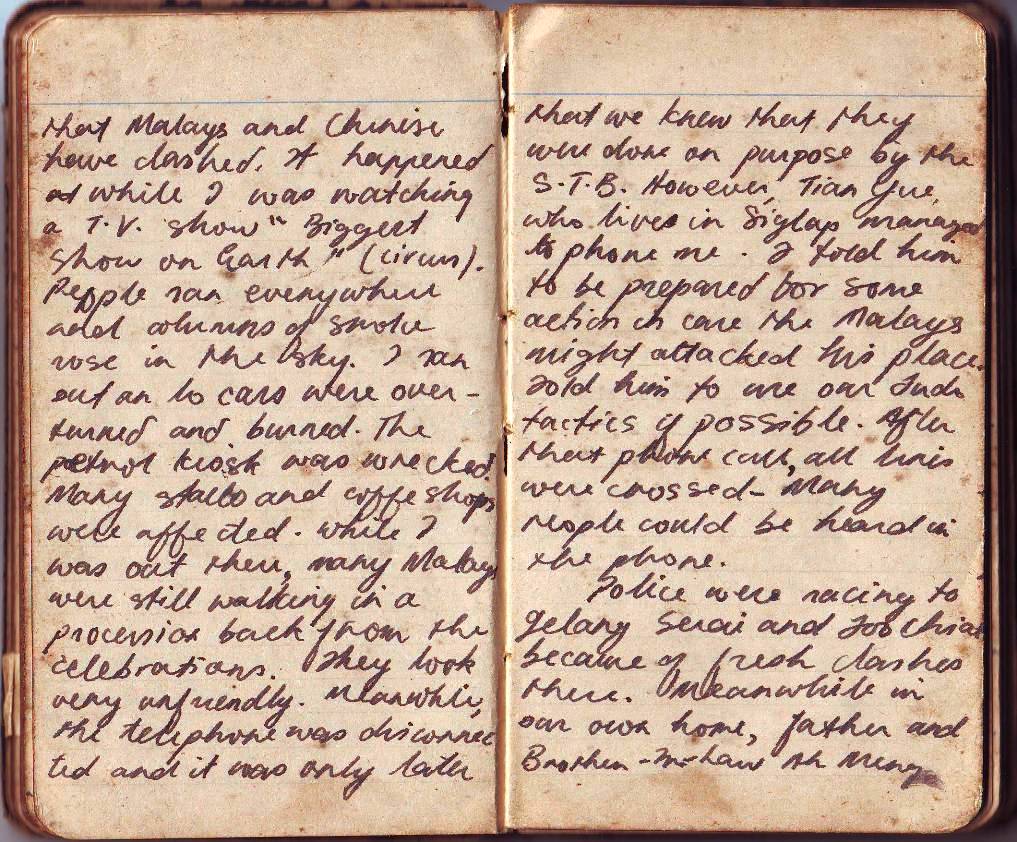 that Malays and Chinese
have clashed. It happened
at while I was watching
a T.V. show " Biggest
show on Earth " (circus).
People ran everywhere
and columns of smoke
rose in the sky. I ran
out an 10 cars were over-
turned and burned. The
petrol kiosk was wrecked.
Many stalls and coffe shops
were affected. While I
was out there, many Malays
were still walking in a
procession back from the
celebrations. They look
very unfriendly. Meanwhile,
the telephone was disconnec
ted and it was only later
that we knew that they
were done on purpose by the
S.T.B. However, Tian Yue,
who lives in Siglap managed
to phone me. I told him
to be prepared for some
action in case the Malays
might attacked his place.
Told him to use our Judo
tactics if possible. After
that phone call, all lines
were crossed- Many
people could be heard in
the phone.
Police were racing to
Gelang Serai and Joo Chiat
because of fresh clashes
there. Meanwhile in
our own home, father and
Brother-in-law Ah Meng